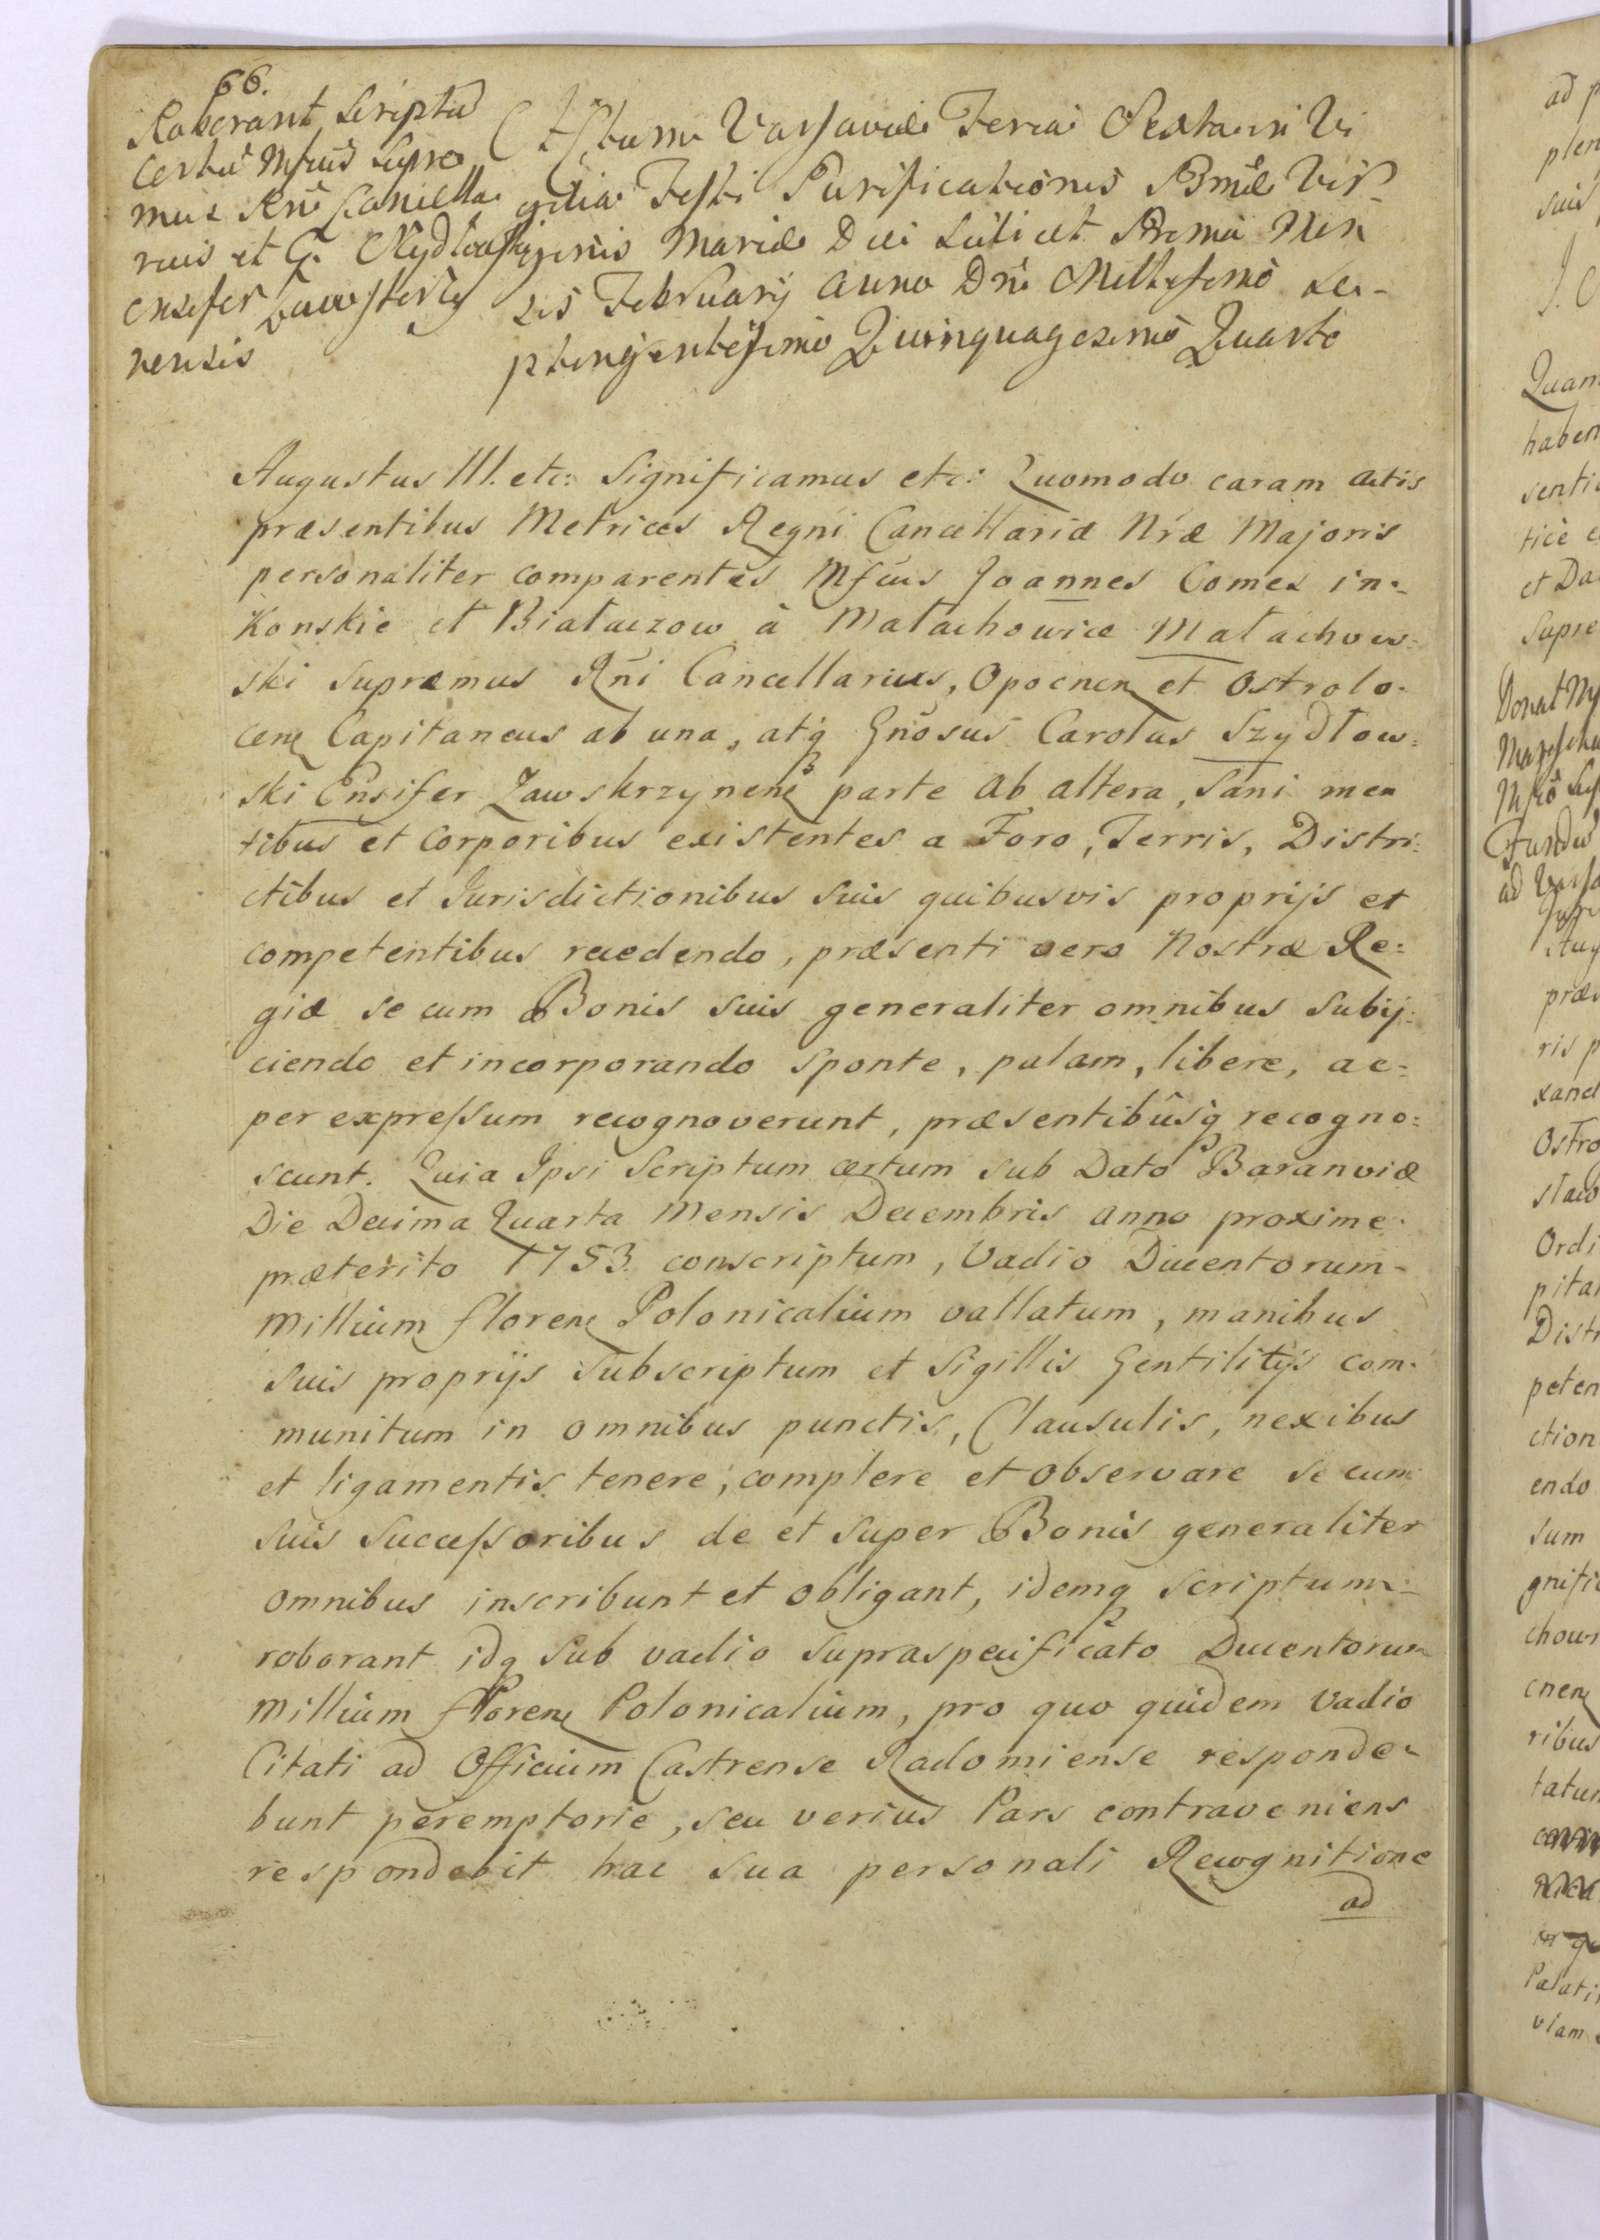 66.
Roborant Scriptū
certū Mfcus Supre
mus Rni Cancella
rius et G. Szydłowski
ensifer Zawskrzy
nensis
Actum Varsaviæ Feria Sexta in Vi
gilia Festi Purificationis Bmæ Vir
ginis Mariæ Die scilicet Prima Men
sis Februarij Anno Dni Millesimo Se-
ptingentesimo Quinquagesimo Quarto
Augustus III. etc: Significamus etc: Quomodo coram actis
præsentibus Metrices Regni Cancellariæ Nræ Majoris
personaliter comparentes Mfcus Joannes Comes in-
Konskie et Białaczow à Małachowice Małachow-
ski Supremus Rñi Cancellarius, Opocnen et Ostrolo-
cen Capitaneus ab una, atq Gnosus Carolus Szydłow-
ski Ensifer Zawskrzynen parte ab altera, Sani men
tibus et Corporibus existentes a Foro, Terris, Distri:
ctibus et Jurisdictionibus suis quibusvis proprijs et
competentibus recedendo, præsenti vero Nostræ Re:
giæ se cum Bonis suis generaliter omnibus Subij:
ciendo et incorporando sponte, palam, libere, ac:
per expreſsum recognoverunt, præsentibusq recogno:
scunt. Quia Ipsi Scriptum certum sub Dato Baranviæ
Die Decima Quarta Mensis Decembris anno proxime
præterito 1753 conscriptum, Vadio Ducentorum-
Millium floren Polonicalium vallatum, manibus
suis proprijs subscriptum et Sigillis Gentilitijs com-
munitum in omnibus punctis, Clausulis, nexibus
et ligamentis tenere, complere et observare se cum
suis Succeſsoribus de et super Bonis generaliter
omnibus inscribunt et obligant, idemq Scriptum-
roborant idq Sub vadio supraspecificato Ducentorum
Millium floren Polonicalium, pro quo quidem Vadio
Citati ad Officium Castrense Radomiense responde-
bunt peremptorie, seu verius Pars contraveniens
respondebit hac sua personali Recognitione
ad
ad p
plen
suis
Quam
haben
senti
tice e
et Da
Supre
Donat
præs
ris p
xand
Ostro
staw
Ordi
pitan
Distr
peten
ction
endo
sum
gnific
chows
cnen
ribus
tatum
Palati
viam